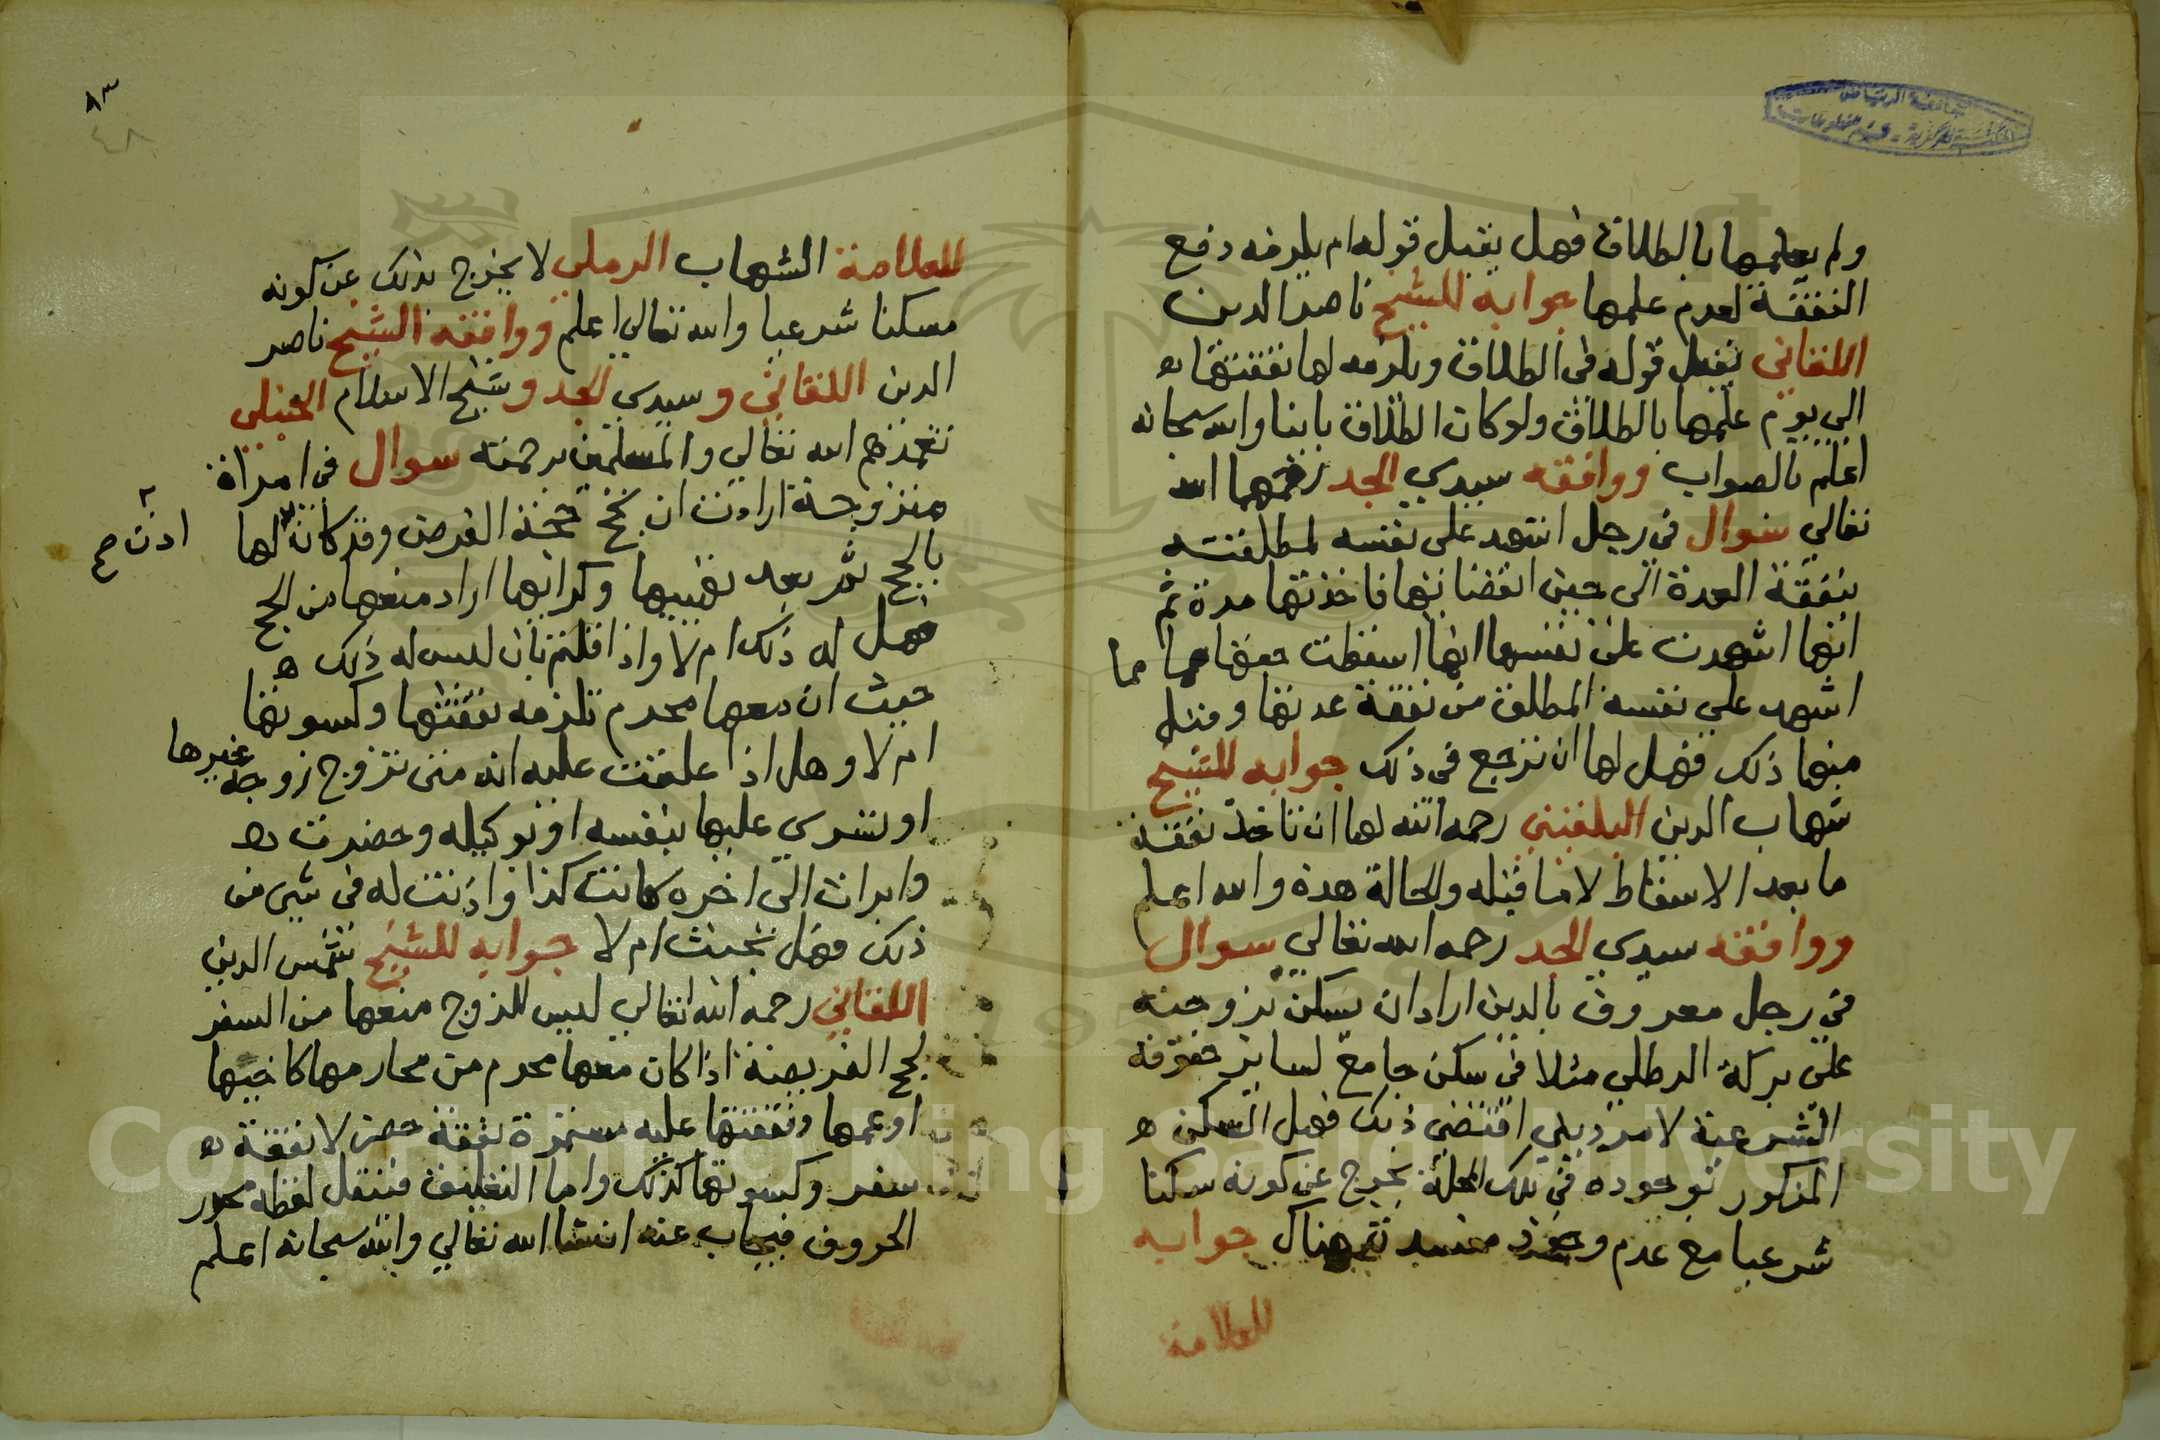 ولم يعلمها بالطلاق فهل يقبل قوله ام يلزمه دفع
النفقة لعدم علمها جوابه للشيخ ناصر الدين
اللقاني يقبل قوله في الطلاق ويلزمه لها نفقتها
الى يوم علمها بالطلاق ولو كان الطلاق باينا والله سبحانه
اعلم بالصواب ووافقه سيدي الجد رحمهما الله
تعالي سوال في رجل اشهد على نفسه لمطلقته
بنفقة العدة الى حين انقضايها فاخذتها مدة ثم
انها اشهدت على نفسها انها اسقطت حقها مما
اشهد علي نفسه المطلق من نفقة عدتها وقبل
منها ذلك فهل لها ان ترجع في ذلك جوابه للشيخ
شهاب الدين البلقيني رحمه الله لها ان تاخذ نفقة
ما بعد الاسقاط لا ما قبله والحالة هذه والله اعلم
ووافقه سيدي الجد رحمه الله تعالي سوال
في رجل معروف بالدين اراد ان يسكن بزوجته
على بركة الرطلي مثلا في سكن جامع لساير حقوقه
الشرعية لامر ديني اقتضى ذلك فهل السكن
المذكور بوجوده في تلك المحلة يخرج عن كونه سكنا
شرعيا مع عدم وجود مفسد ثم هناك جوابه
للعلامة
٨٣
٤٨
للعلامة الشهاب الرملي لا يخرج بذلك عن كونه
مسكنا شرعيا والله تعالي اعلم ووافقه الشيخ ناصر
الدين اللقاني وسيدي الجد وشيخ الاسلام الحنبلي
تغمدهم الله تعالي والمسلمين برحمته سوال في امراة
متزوجة ارادت ان تحج حجة الفرض وقد كان لها
اذن صح
بالحج ثم بعد تهييها وكرايها اراد منعها من الحج
فهل له ذلك ام لا واذا قلتم بان ليس له ذلك
حيث ان معها محرم تلزمه نفقتها وكسوتها
ام لا وهل اذا علقت عليه انه متى تزوج زوجة غيرها
او تسرى عليها بنفسه او توكيله وحضرت
وابرات الى اخره كانت كذا واذنت له في شي من
ذلك فهل يحنث ام لا جوابه للشيخ شمس الدين
اللقاني رحمه الله تعالي ليس للزوج منعها من السفر
لحج الفريضة اذا كان معها محرم من محارمها كاخيها
او عمها ونفقتها عليه مستمرة نفقة حضر لا نفقة
سفر وكسوتها كذلك واما التعليق فينقل لفظه محرر
الحروف فيجاب عنه انشا الله تعالي والله سبحانه اعلم
Copyright © King Saud University